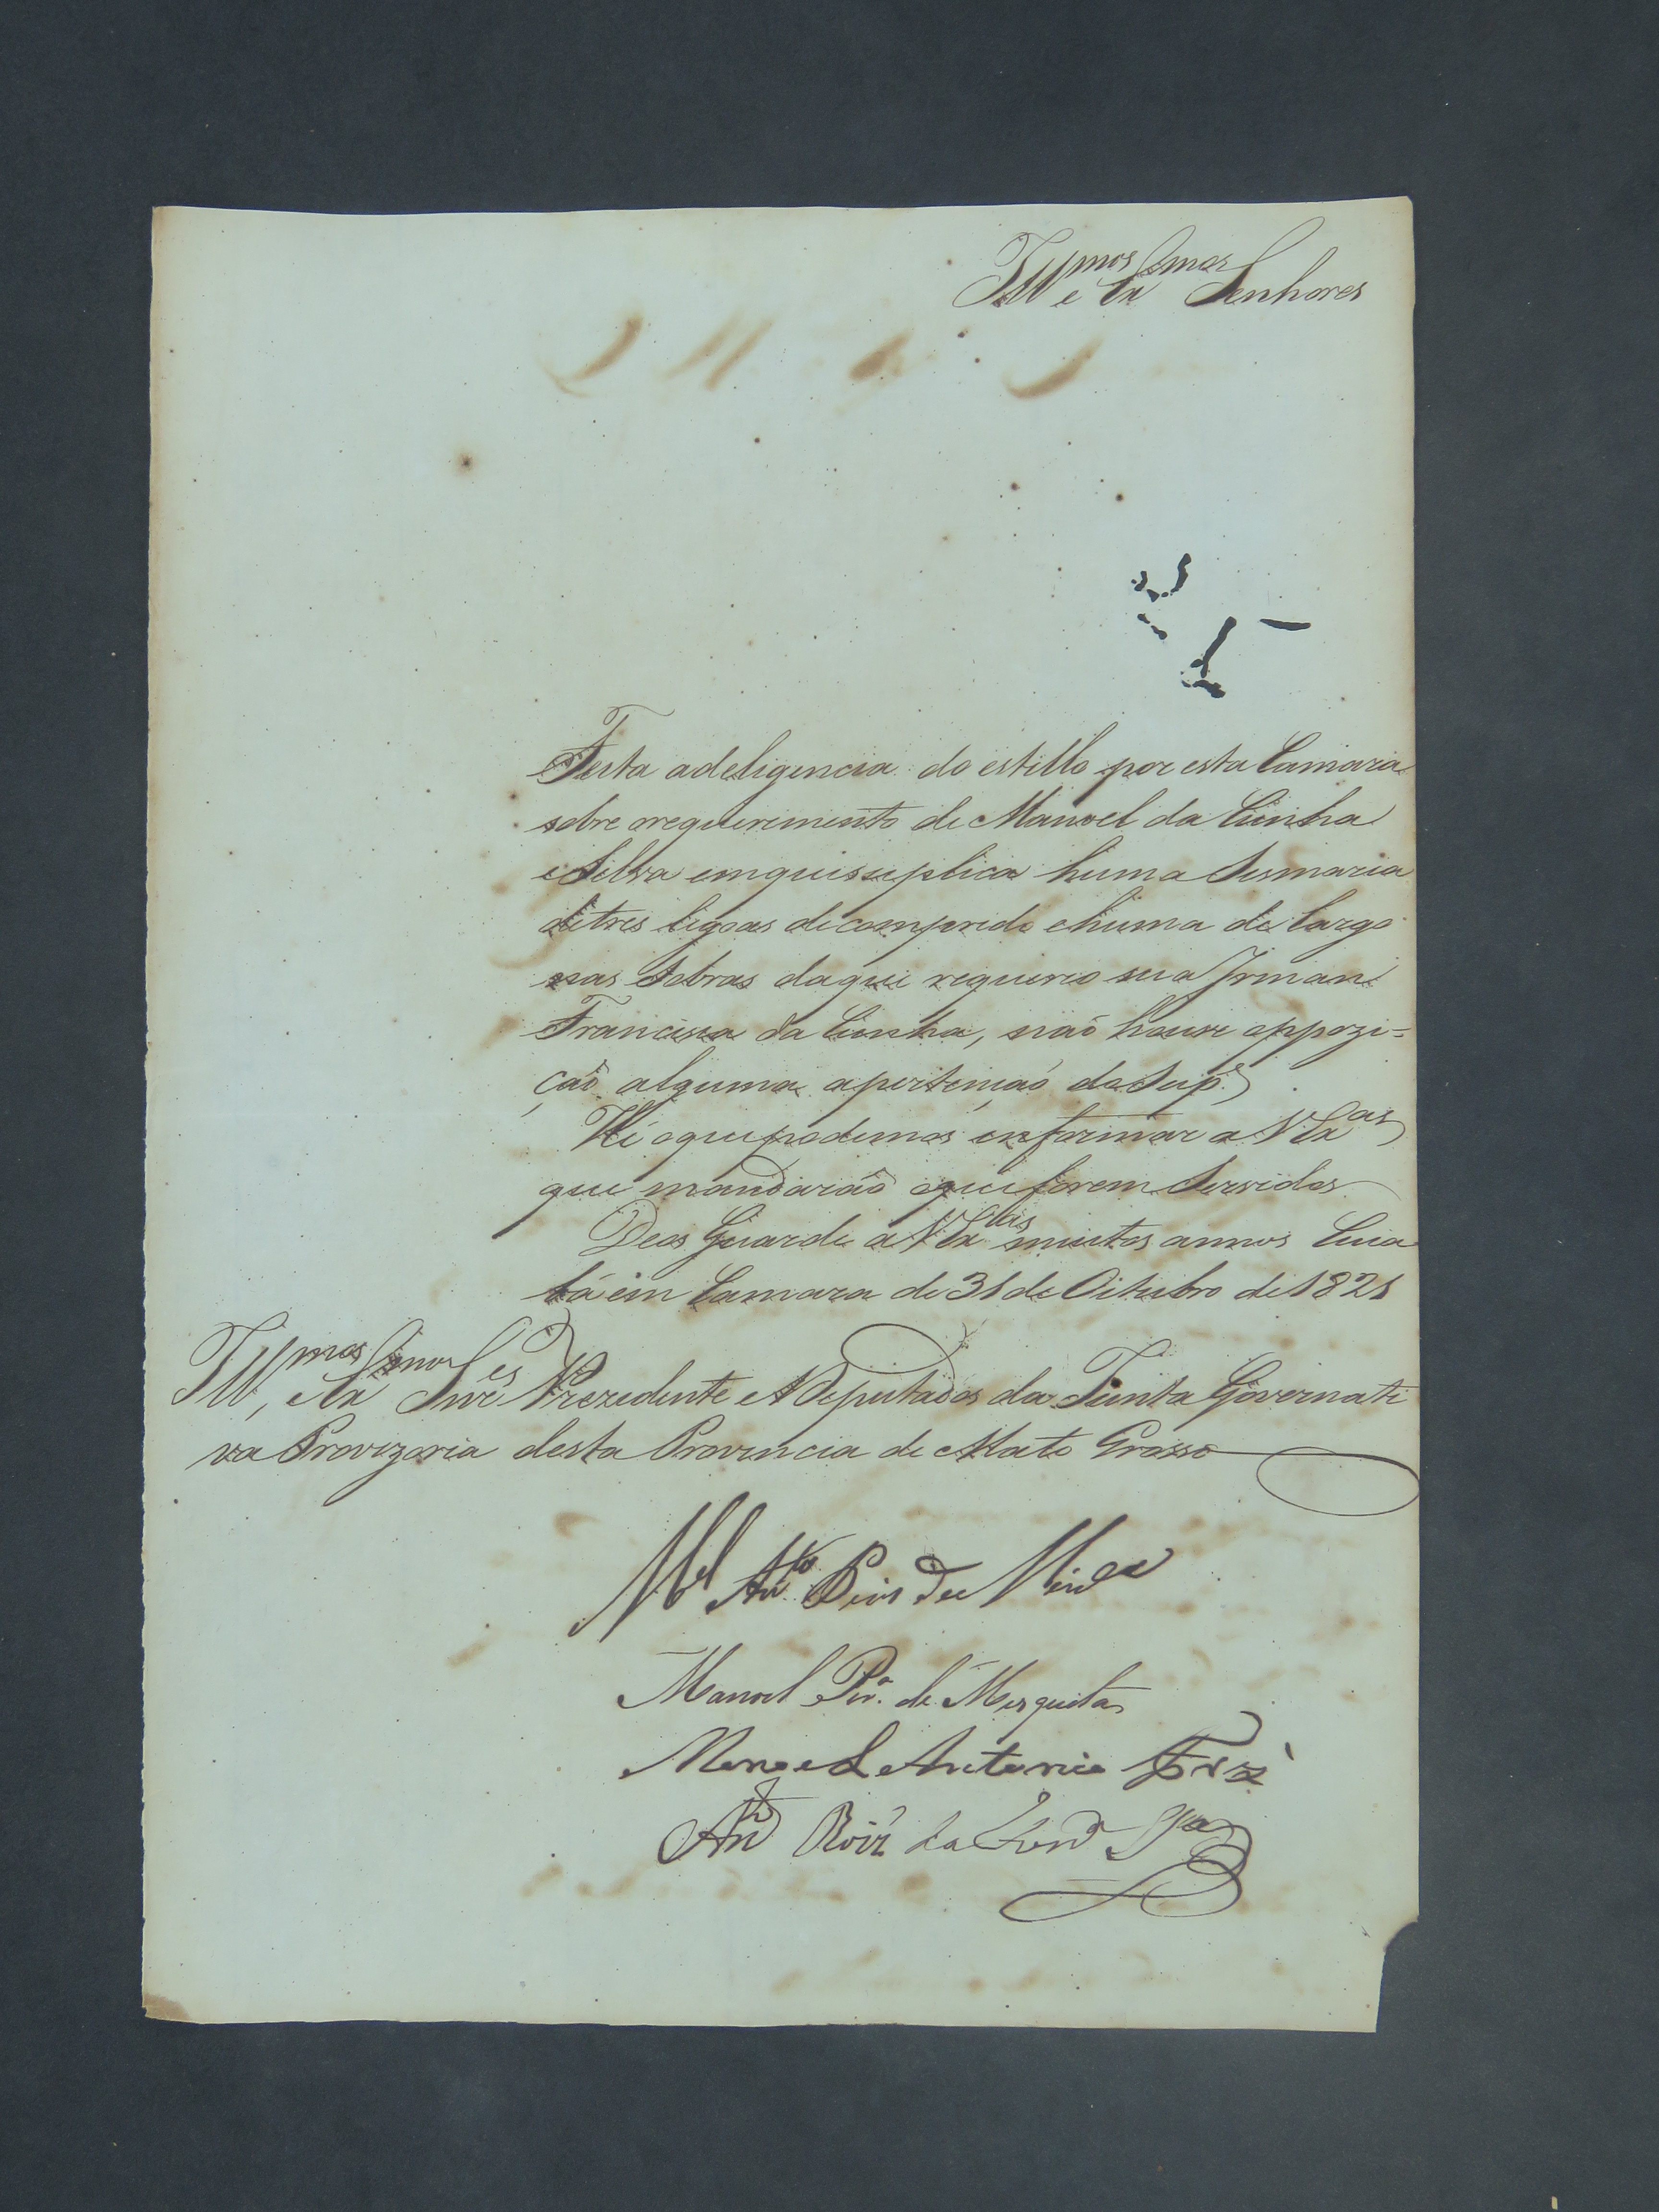 Ill.mos e Ex.mos Senhores
Feita adeligencia do estillo por esta Camara
sobre orequerimento de Manoel da Cunha
e Silva emquesuplica huma Sesmaria
detres legoas decomprido ehuma de largo
nas Sobras daque requerio sua Irman
Francisca da Cunha, naõ houve oppozi=
çaõ alguma apertençaõ do Sup.e
He oquepodemos informar a V Ex.as
que mandaraõ oqueforem Servidos
Deos Guarde a V Ex.cias muitos annos Cuia
bá em Camara de 31 de Oitubro de 1821
Ill.mos, e Ex.mos Snr.es Prezidente e Deputados da Junta Governati
va Provizoria desta Provincia de Mato Grosso
M.el An.to Pires de
Manoel Per.a de Mesquita
Manoel Antonio
Ant.o Roiz da